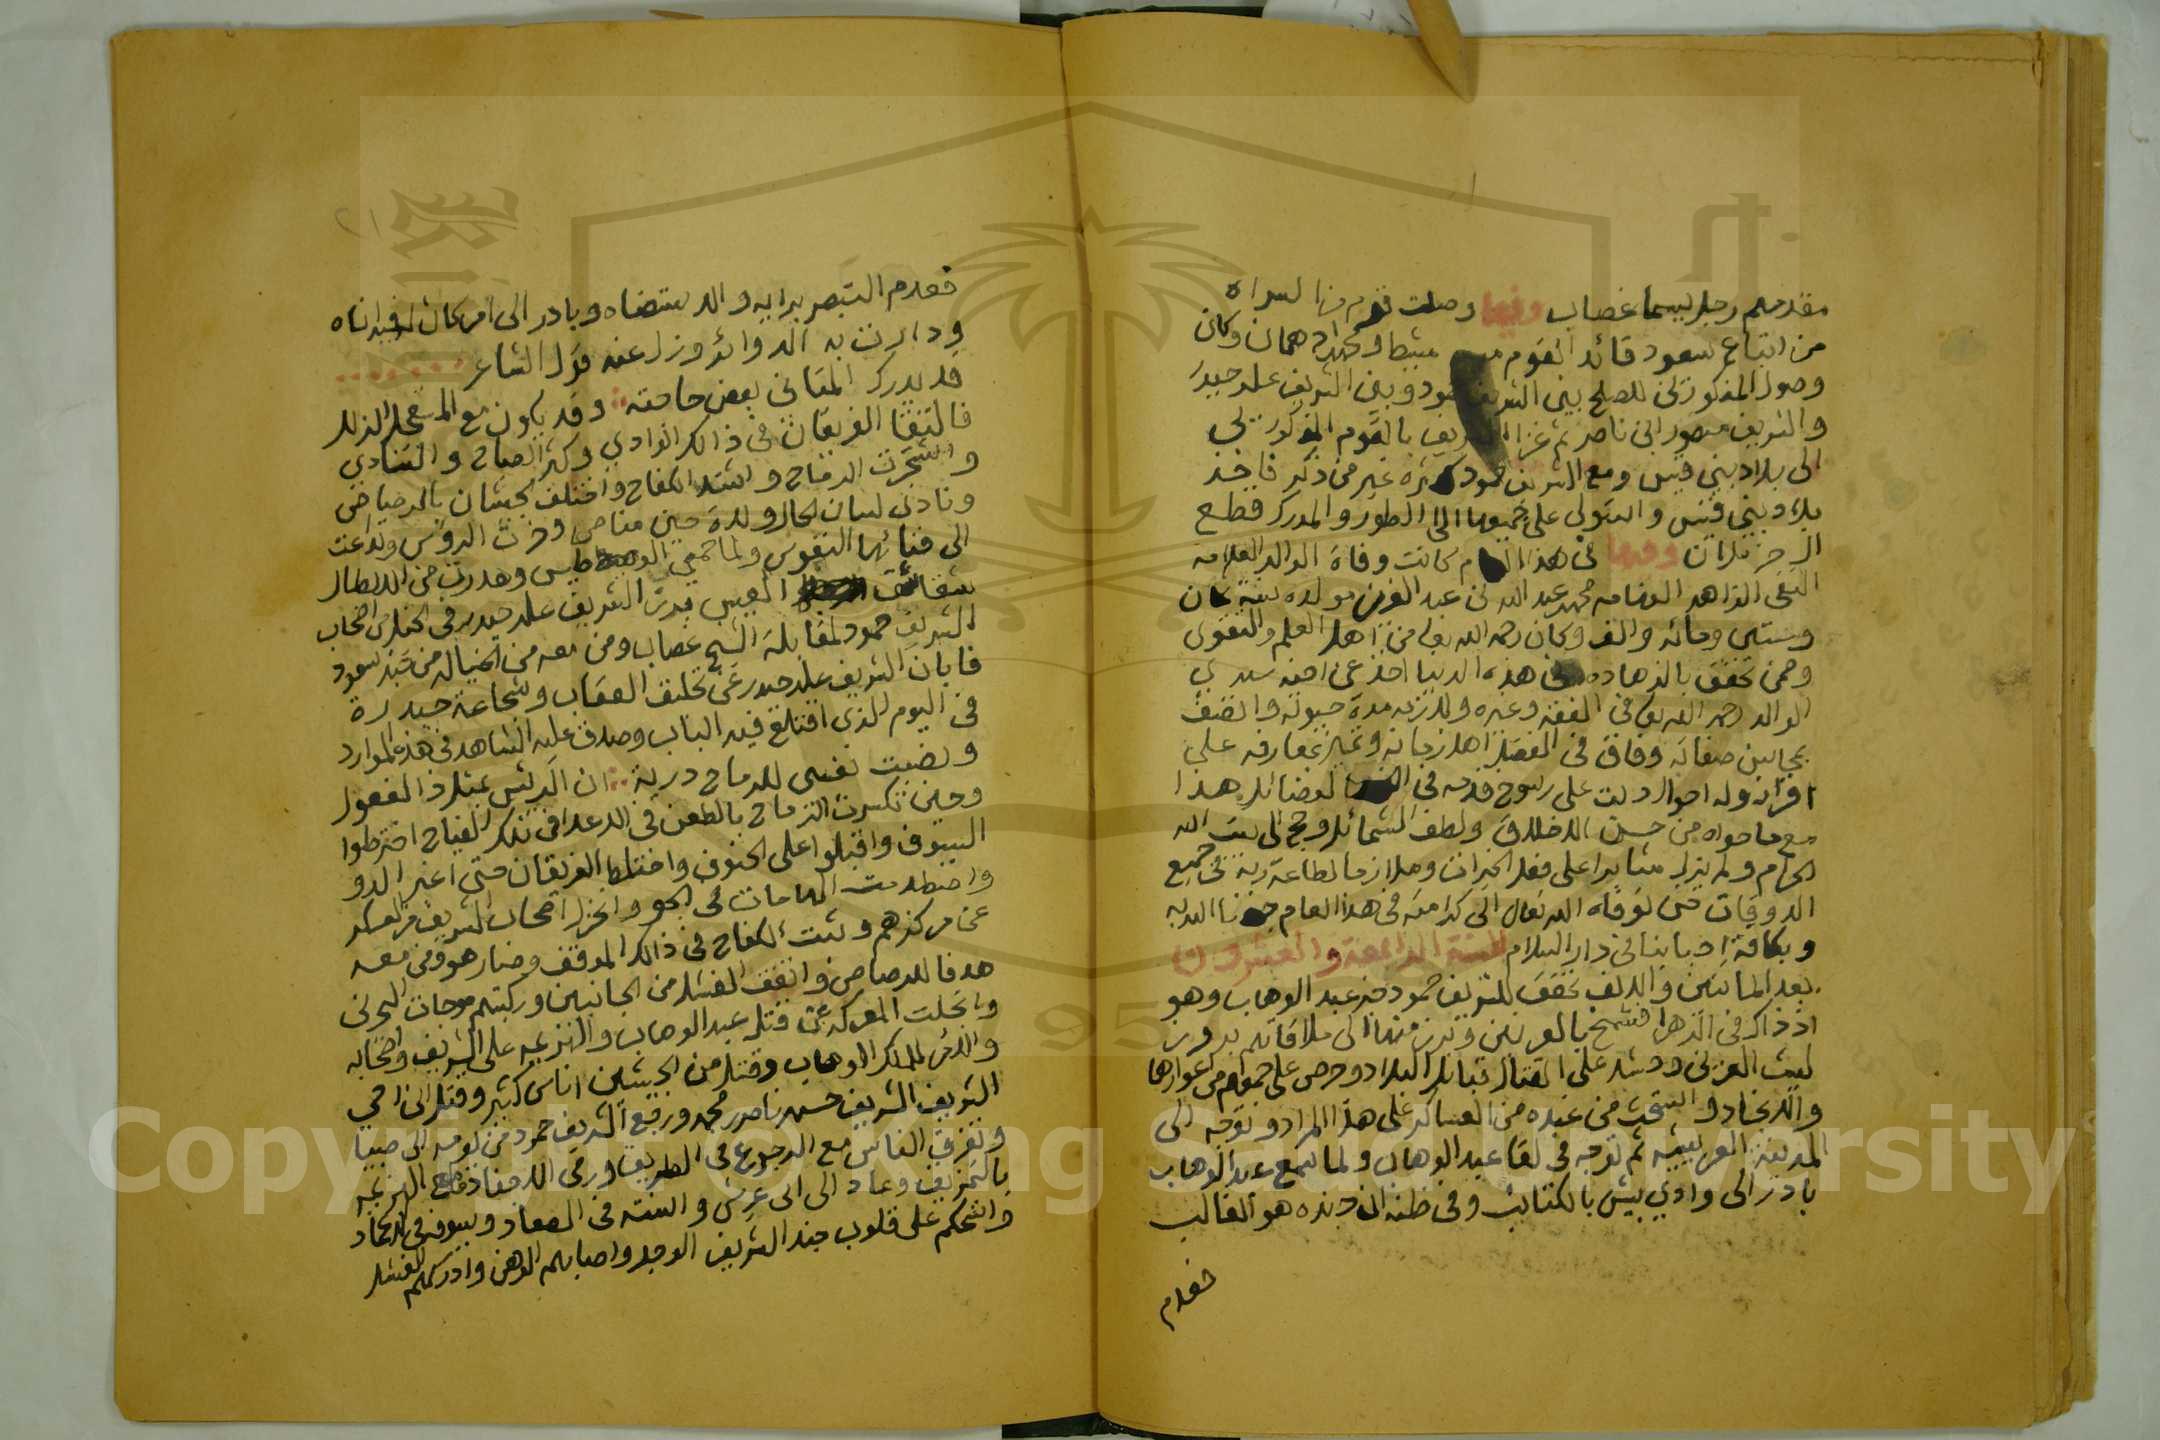 مقدمهم رجل يسما غصاب وفيها وصلت قوم من السراه
من اتباع سعود قائد القوم مشيط ومحمد بن دهمان وكان
وصول المذكورين للصلح بين الشريف حمود وبين الشريف على حيدر
والشريف منصور ابن ناصر ثم غزا الشريف بالقوم المذكورين
الى بلاد بني قيس ومع الشريف حمود كثره غير من ذكر فاخذ
بلاد بني قيس واستولى على جميعها الى الطور والمدرك قطع
وفيها في هذا العام كانت وفاة الوالد العلامه
التقي الزاهد محمد عبد الله بن عبد العزيز مولده سنة ثمان
وستين ومائه والف وكان رحمه الله تعالى من اهل العلم والتقوى
وممن تحقق بالزهاده في هذه الدنيا اخذ عن اخيه سيدي
الوالد رحمه الله تعالى في الفقه وغيره ولازمه مدة حيوته واتصف
بمحاسن صفاته وفاق في الفضل اهل زمانه وتميز بمعارفه على
اقرانه وله احوال دلت على رسوخ قدمه في الفضائل هذا
مع ما حواه من حسن الاخلاق ولطف الشمائل وحج الى بيت الله
الحرام ولم يزل مثابرا على فعل الخيرات وملازما لطاعة ربه في جميع
الاوقات حتى توفاه الله تعالى الى كرامته في هذا العام جمعنا الله به
وبكافة احبابنا في دار السلام السنة الرابعة والعشرون
بعد المائتين والالف تحقق للشريف حمود خبر عبد الوهاب وهو
اذ ذاك في الزهرا فسمح بالعريش وبرز منها الى ملاقاتهم بروز
ليث العرين وحشد على القتال قبائل البلاد وحرص على جمعهم من اغوارها
والانجاد واستحث من عنده من العساكر على هذا المراد وتوجه الى
المدينة العريشيه ثم توجه في لقا عبد الوهاب ولما سمع عبد الوهاب
بادر الى وادي بيش بالكتائب وفي ظنه ان جنده هو الغالب
فعدم
٢١
فعدم التبصر برايه والاستضاه وبادر الى امر كان له فيه اناه
ودارت به الدوائر وزل عنه قول الشاعر
قد يدرك المتاني بعض حاجته وقد يكون مع المستعجل الزلل
فالتقتا الفريقان في ذالك الوادي وكثر الصياح والتنادي
واشتجرت الرماح واشتد الكفاح واختلف الجيشان بالرصاص
ونادى لسان الحال ولات حين مناص وخرت الروس وتداعت
الى فنائها النفوس ولما حمي الوطيس وهدرت من الابطال
شقاشق العيس برز الشريف على حيدر في الخيل من اصحاب
الشريف حمود لمقابلة الشيخ غصاب ومن معه من الخياله من جند سعود
فابان الشريف على حيدر عن تحليق العقاب وشجاعة حيدرة
في اليوم الذي اقتلع فيه الباب وصدق عليه الشاهد في هذه الموارد
ونصبت نفسى للرماح درية ان الرئيس لمثل ذا لفعول
وحين تكسرت الرماح بالطعن في الاعدا في تلك الفياح اخترطوا
السيوف واقبلوا على الحتوف واختلط الفريقان حتى اغبر الدو
واصطدمت الهامات في الجو وانخزل اصحاب الشريف من العسكر
عن مركزهم وثبت الكفاح في ذالك الموقف وصار هو ومن معه
هدفا للرصاص واتفق الفشل من الجانبين وركبتهم موجات البحرين
وانجلت المعركه عن قتل عبد الوهاب والهزيمه على الشريف واصحابه
والامر للملك الوهاب وقتل من الجيشين اناس كثير وقتل ابن اخي
الشريف الشريف حسن ناصر محمد ورجع الشريف حمود من يومه الى صبيا
وتفرق الناس مع الرجوع في الطريق ورمي الاصفاد مع الهزيمه
بالتمزيق وعاد الى ابي عريش والسنته في الصعاد وسيوفه في الاغماد
واستحكم على قلوب جند الشريف الوجل واصابهم الوهن وادركهم الفشل